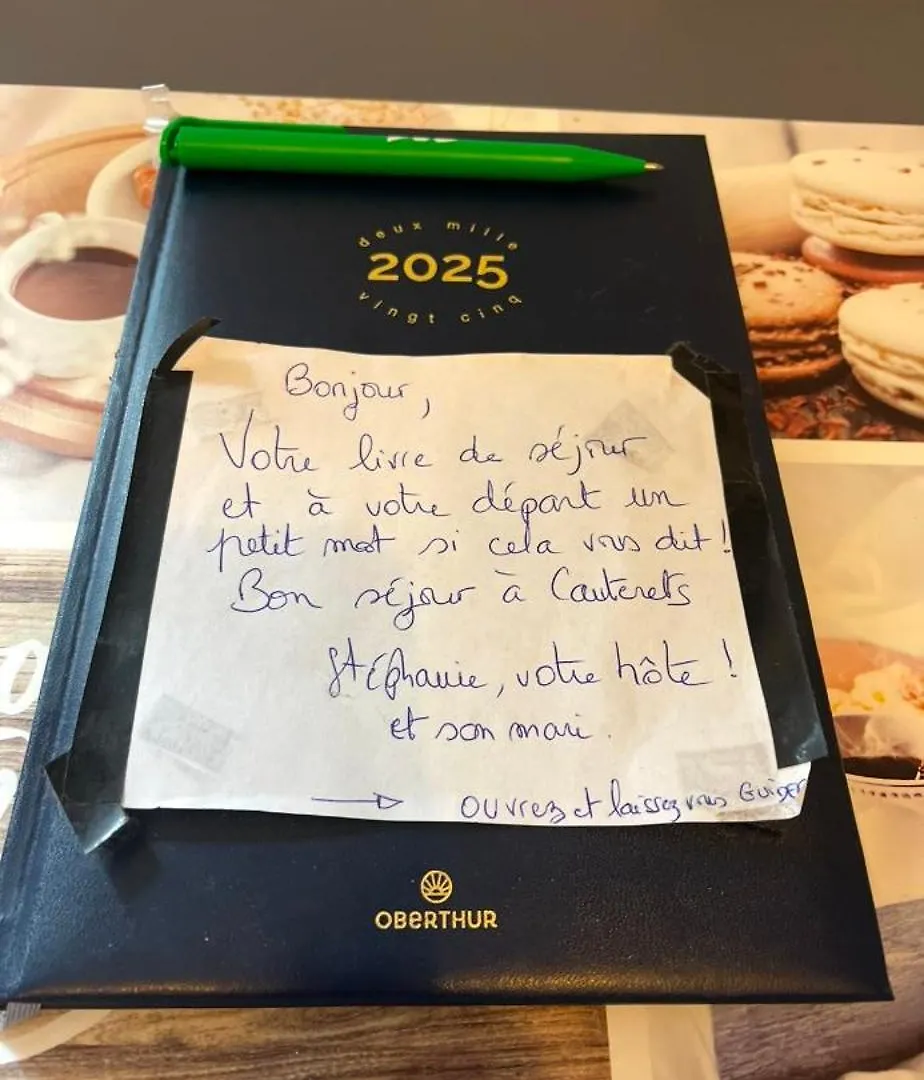 deux mille
2025
vingt cinq
Bonjour,
Votre livre de séjour
et à votre départ un
petit mot si cela vous dit !
Bon séjour à Cauterets
Stéphanie, votre hôte !
et son mari.
→ ouvrez et laissez vous Guider
OBERTHUR